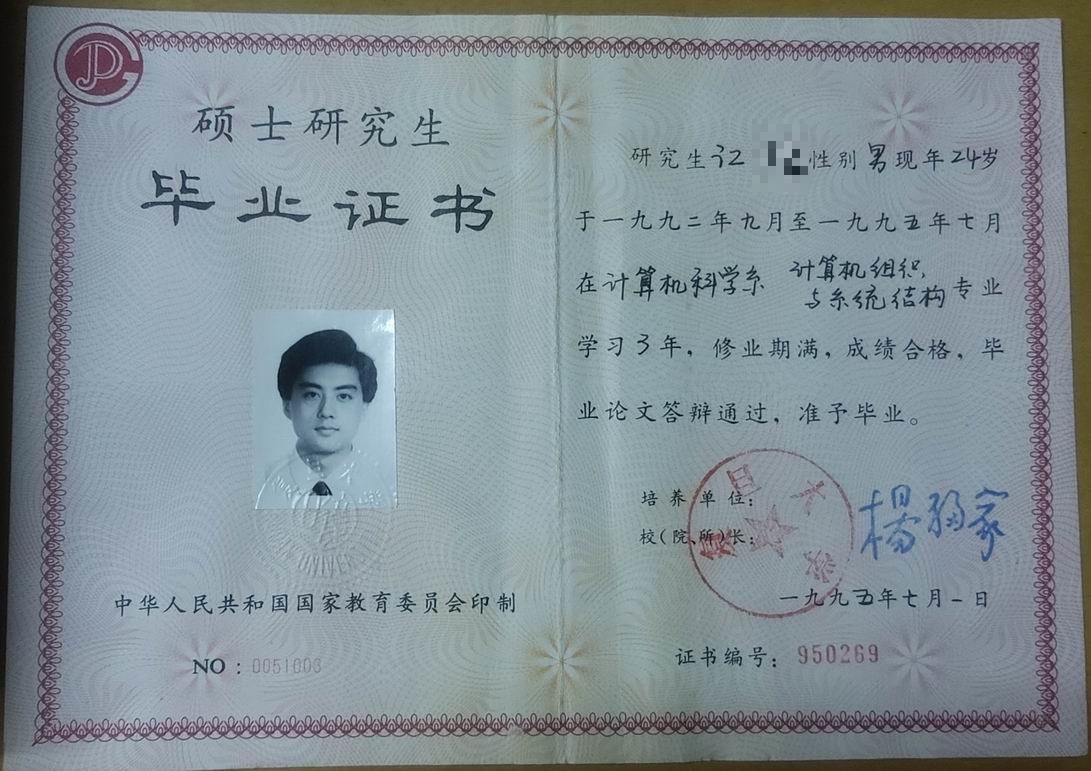 硕士研究生
毕业证书
中华人民共和国国家教育委员会印制
NO：0051003
研究生江 性别男现年24岁
于一九九二年九月至一九九五年七月
在计算机科学系 计算机组织与系统结构专业
学习3年，修业期满，成绩合格，毕
业论文答辩通过，准予毕业。
培养单位：
校（院、所）长：杨福家
复旦大学
一九九五年七月一日
证书编号：950269